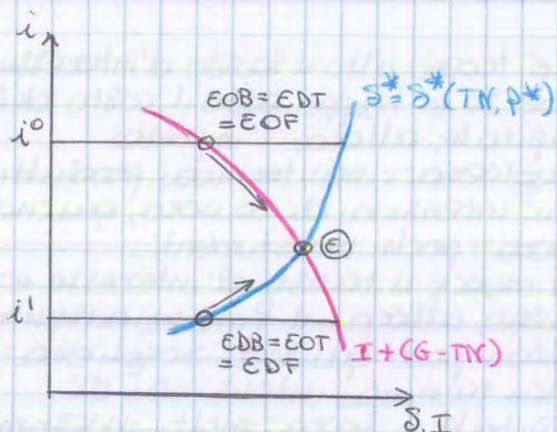 i
EOB = EDT
= EOF
S* = S*(TN, P*)
i⁰
E
i¹
EDB = EOT
= EDF
I + (G - TN)
S, I